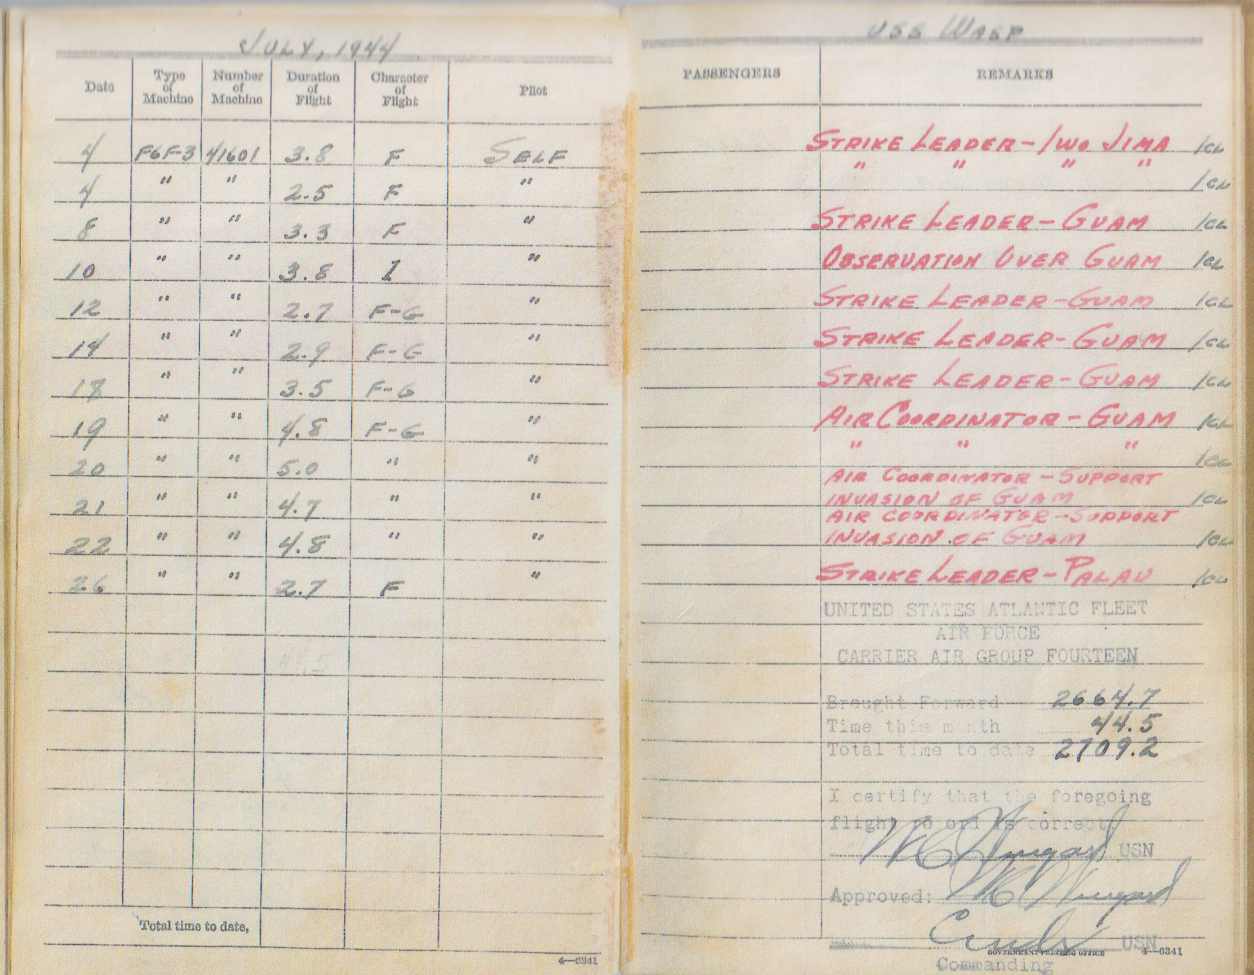 JULY, 1944
Date Type of Machine Number of Machine Duration of Flight Character of Flight Pilot
4 F6F-3 41601 3.8 F SELF
4 " " 2.5 F "
8 " " 3.3 F "
10 " " 3.8 I "
12 " " 2.7 F-G "
14 " " 2.9 F-G "
18 " " 3.5 F-G "
19 " " 4.8 F-G "
20 " " 5.0 " "
21 " " 4.7 " "
22 " " 4.8 " "
26 " " 2.7 F "
44.5
Total time to date,
4—6341
USS WASP
PASSENGERS REMARKS
STRIKE LEADER - IWO JIMA 1CL
" " " " 1CL
STRIKE LEADER - GUAM 1CL
OBSERVATION OVER GUAM 1CL
STRIKE LEADER - GUAM 1CL
STRIKE LEADER - GUAM 1CL
STRIKE LEADER - GUAM 1CL
AIR COORDINATOR - GUAM 1CL
" " " 1CL
AIR COORDINATOR - SUPPORT
INVASION OF GUAM 1CL
AIR COORDINATOR - SUPPORT
INVASION OF GUAM 1CL
STRIKE LEADER - PALAU 1CL
UNITED STATES ATLANTIC FLEET
AIR FORCE
CARRIER AIR GROUP FOURTEEN
Brought Forward 2664.7
Time this month 44.5
Total time to date 2709.2
I certify that the foregoing
flight record is correct
USN
Approved:
USN
GOVERNMENT PRINTING OFFICE 4—6341
Commanding